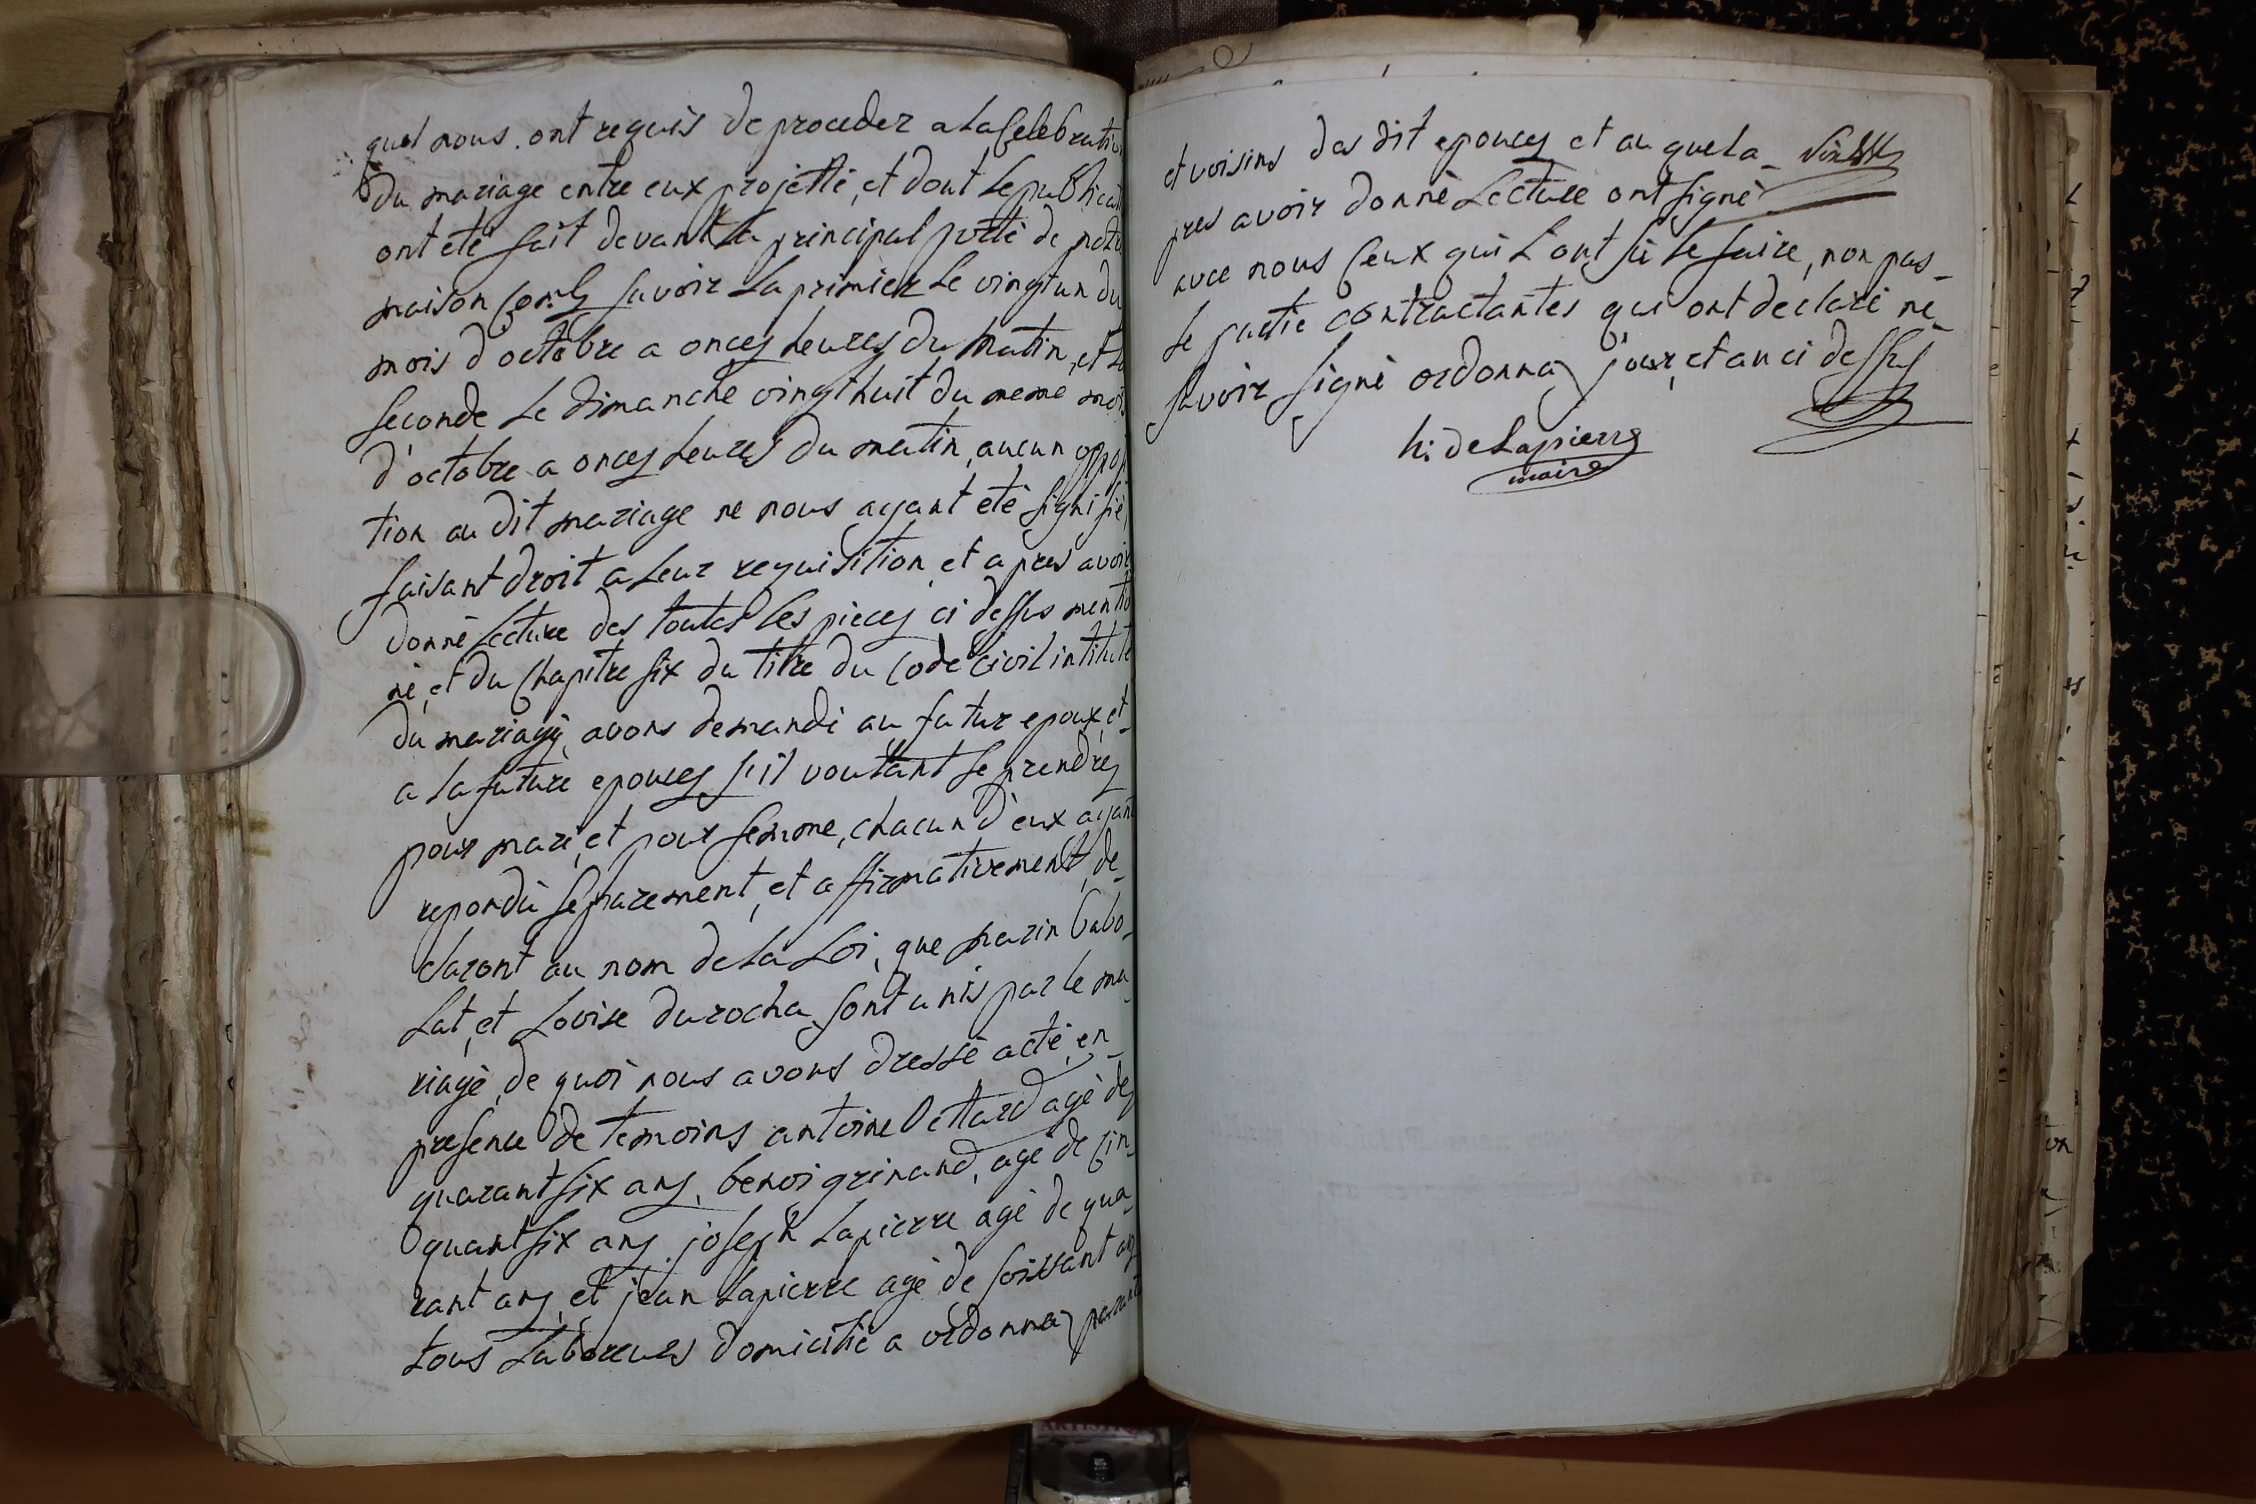 quel nous ont requis de proceder a la Celebration
du mariage entre eux projetté, et dont le publicat
ont eté fait devant la principal porte de notre
maison Comls savoir la primier le vingt un du
mois d'octobre a onces heures du matin, et la
seconde le dimanche vingt huit du meme mois
d'octobre a onces heures du matin, aucun opposi
tion au dit mariage ne nous ayant eté signifié,
faisant droit a leur requisition et apres avoir
donné lecture des toutes les pieces ci dessus mentio
né, et du Chapitre six du titre du Code civil intitulé
du mariagé, avons demandé au futur epoux, et
a la future epouces s'il voultant se prendres
pour mari, et pour femme, chacun d'eux ayant
repondu separement, et affirmativement, de
claront au nom de la Loi, que marin Cabo
Lat, et Lovise durocha sont unis par le ma
riagé, de quoi nous avons dressé acté, en
presence de temoins antoine Vettard agé des
quarant six ans, benoi grinand, agé de Cin
quant six ans, joseph Lapierre agé de qua
rant ans, et jean Lapierre agé de soissant ans
tous laboreurs domicilié a ordonnaz parant
et voisins des dit epouces et au quel a
pres avoir donné Lecture ont signé
avce nous Ceux qui L'ont sû le faire, non pas
le partie contractantes qui ont declaré ne
savoir signé ordonnaz jour, et an ci dessus
h: de Lapierre
maire